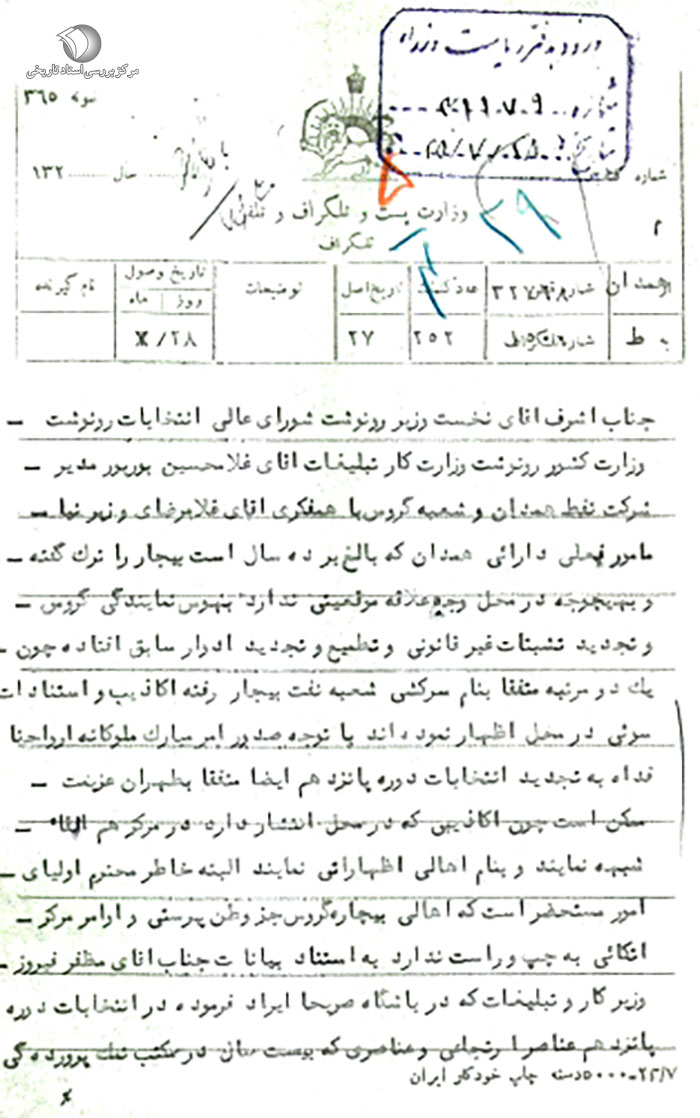 مرکز بررسی اسناد تاریخی
ورود به دفتر ریاست وزراء
شماره
تاریخ
نمونه ۳۶۵
شماره کتاب
سال ۱۳۲
وزارت پست و تلگراف و تلفن
تلگراف
۲
از همدان
شماره قبض
عدد کلمات
تاریخ اصل
توضیحات
تاریخ وصول
روز ماه
نام گیرنده
به ط
شماره تلگراف
۲۵۲
۲۷
۲۸/
جناب اشرف اقای نخست وزیر رونوشت شورای عالی انتخابات رونوشت –
وزارت کشور رونوشت وزارت کار تبلیغات اقای غلامحسین پورپور مدیر –
شرکت نفط همدان و شعبه گروس با همفکری اقای غلامرضای وزیر نیا –
مامور فعلی دارائی همدان که بالغ بر ده سال است بیجار را ترک گفته –
و بهیچوجه در محل وجه علاقه موقعیتی ندارد بهوس نمایندگی گروس –
و تجدید تشبثات غیر قانونی و تطمیع و تجدید ادوار سابق افتاده چون –
یک دو مرتبه متفقا بنام سرکشی شعبه نفت بیجار رفته اکاذیب و استنادات
سوئی در محل اظهار نموده اند با توجه صدور امر مبارک ملوکانه ارواحنا
فداه به تجدید انتخابات دوره پانزدهم ایضا متفقا بطهران عزیمت –
ممکن است چون اکاذیبی که در محل انتشار دارد در مرکز هم القاء –
شبهه نمایند و بنام اهالی اظهاراتی نمایند البته خاطر محترم اولیای –
امور مستحضر است که اهالی بیچاره گروس جز وطن پرستی و اوامر مرکز –
اتکائی به چپ و راست ندارد به استناد بیانات جناب اقای مظفر فیروز –
وزیر کار و تبلیغات که در باشگاه صریحا ایراد فرموده در انتخابات دوره
پانزدهم عناصر ارتجاعی و عناصری که بیست سال در مکتب ننگ پرورده گی
۲۵/۷–۵۰۰۰دسته چاپ خودکار ایران